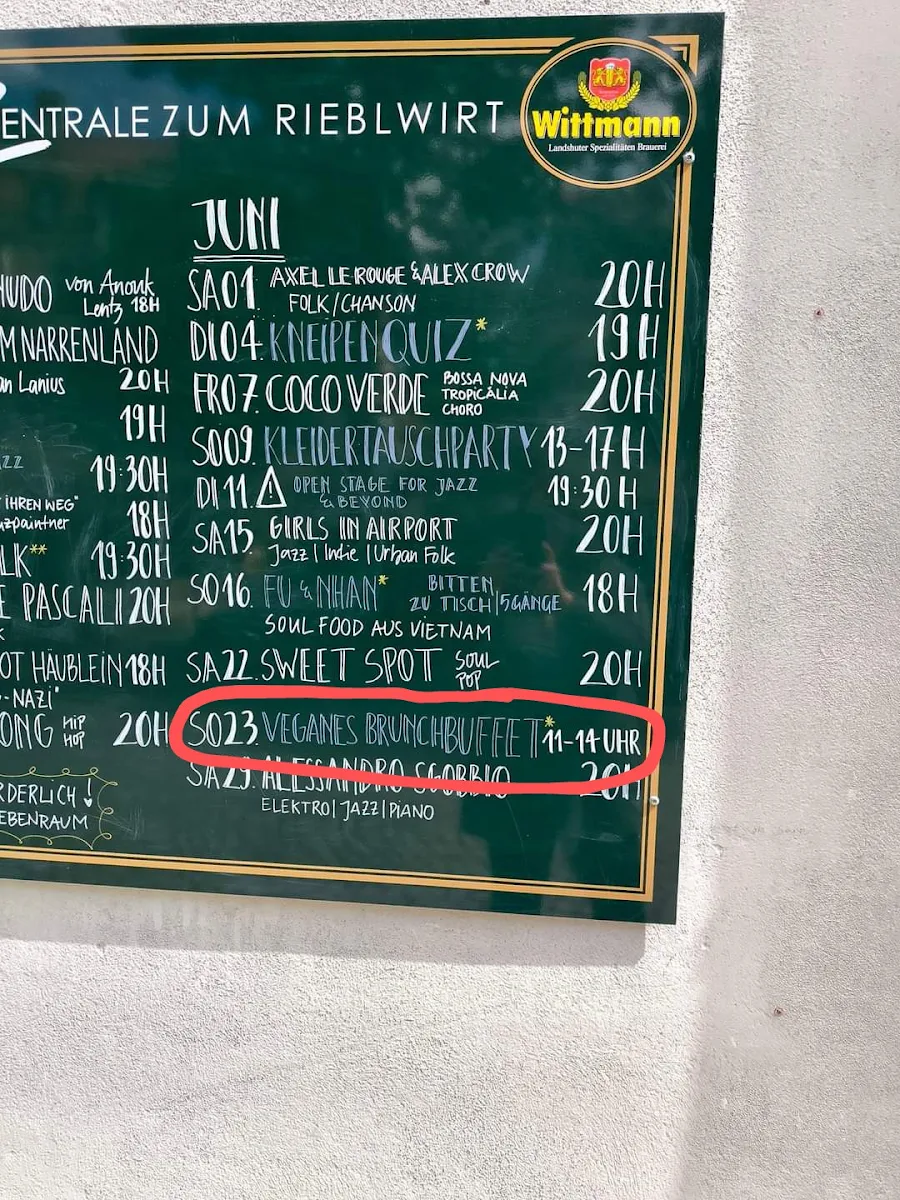 ENTRALE ZUM RIEBLWIRT
Wittmann
Landshuter Spezialitäten Brauerei
HUDO von Anouk
Lentz 18H
M NARRENLAND
an Lanius 20H
19H
ZZ 19:30H
IHREN WEG"
zpaintner 18H
LK** 19:30H
E PASCALI 20H
K
OT HÄUBLEIN 18H
-NAZI"
ONG HIP HOP 20H
RDERLICH!
EBENRAUM
JUNI
SA 01. AXEL LE ROUGE & ALEX CROW 20H
FOLK/CHANSON
DI 04. KNEIPENQUIZ* 19H
FR 07. COCO VERDE BOSSA NOVA 20H
TROPICÁLIA
CHORO
SO 09. KLEIDERTAUSCHPARTY 13-17H
DI 11. ! OPEN STAGE FOR JAZZ 19:30H
& BEYOND
SA 15. GIRLS IN AIRPORT 20H
Jazz | Indie | Urban Folk
SO 16. FU & NHAN* BITTEN 18H
ZU TISCH | 5 GÄNGE
SOUL FOOD AUS VIETNAM
SA 22. SWEET SPOT SOUL 20H
POP
SO 23. VEGANES BRUNCHBUFFET* 11-14 UHR
SA 29. ALESSANDRO SGOBBIO 20H
ELEKTRO | JAZZ | PIANO